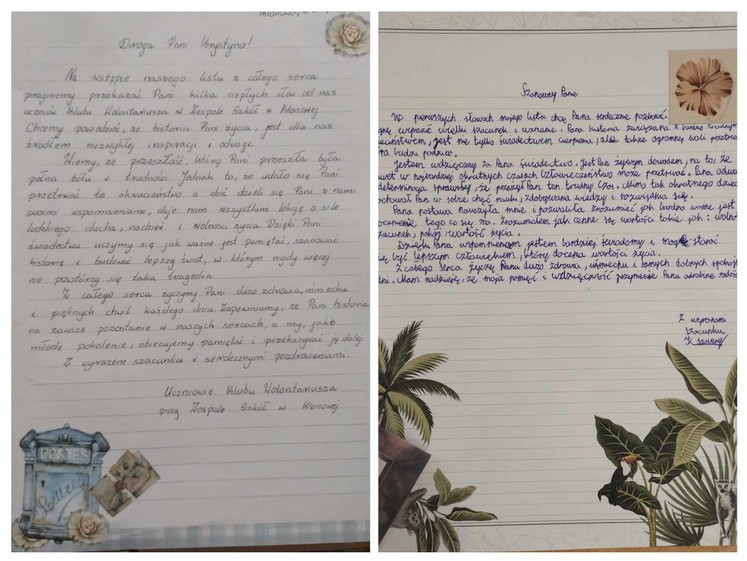 Klonowa,
Droga Pani Krystyno!
Na wstępie naszego listu z całego serca
pragniemy przekazać Pani kilka ciepłych słów od nas
uczniów Klubu Wolontariusza w Zespole Szkół w Klonowej
Chcemy powiedzieć, że historia Pani życia, jest dla nas
źródłem niezwykłej inspiracji i odwagi.
Wiemy, że przeszłość, którą Pani przeszła była
pełna bólu i trudności. Jednak to, że udało się Pani
przetrwać to okrucieństwo a dziś dzieli się Pani z nami
swoimi wspomnieniami, daje nam wszystkim lekcję o sile
ludzkiego ducha, nadziei i wolności życia Dzięki Pani
świadectwu uczymy się jak ważne jest pamiętać, szanować
historię i budować lepszy świat, w którym nigdy więcej
nie powtórzy się taka tragedia.
Z całego serca życzymy Pani dużo zdrowia, uśmiechu
i pięknych chwil każdego dnia. Zapewniamy, że Pani historia
na zawsze pozostanie w naszych sercach, a my, jako
młode pokolenie, obiecujemy pamiętać i przekazywać ją dalej.
Z wyrazem szacunku i serdecznymi pozdrowieniami.
Uczniowie Klubu Wolontariusza
przy Zespole Szkół w Klonowej
POSTES
Szanowny Panie
W pierwszych słowach mojego listu chcę Pana serdecznie pozdrowić
wyrazić wielki szacunek i uznanie. Pana historia związana z
jest nie tylko świadectwem cierpienia, ale także ogromnej woli
budzi podziw.
Jestem wdzięczny za Pana świadectwo. Jest Pan żywym dowodem, na to, że
w najbardziej okrutnych czasach człowieczeństwo może przetrwać. Pana
determinacja sprawiły, że przeżył Pan ten trudny czas. Mimo tak okrutnego
Pan w sobie chęć nauki, zdobywania wiedzy i rozwijania się.
Pana postawa nauczyła mnie i pozwoliła zrozumieć jak bardzo ważne jest
tego co się ma. Zrozumiałem jak cenne są wartości takie jak:
szacunek, pokój i wartość życia.
Dzięki Pana wspomnieniom jestem bardziej świadomy i mogę starać
się być lepszym człowiekiem, który docenia wartości życia.
Z całego serca życzę Panu dużo zdrowia, uśmiechu i samych dobrych
Mam nadzieję, że moja pamięć i wdzięczność przyniesie Panu
Z wyrazami
szacunku